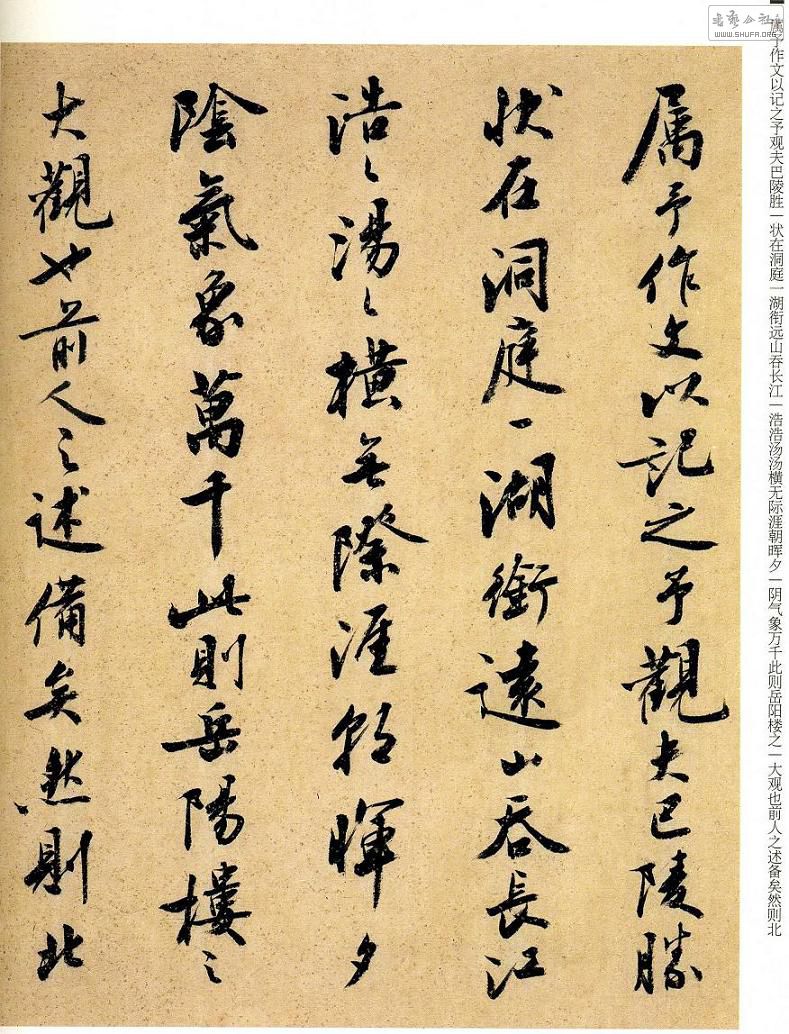 属予作文以記之予觀夫巴陵勝
状在洞庭一湖銜遠山吞長江
浩〻湯〻橫無際涯朝暉夕
陰氣象萬千此則岳陽樓之
大觀也前人之述備矣然則北
属予作文以记之予观夫巴陵胜—状在洞庭一湖衔远山吞长江—浩浩汤汤横无际涯朝晖夕—阴气象万千此则岳阳楼之—大观也前人之述备矣然则北
书艺公社
www.shufa.org